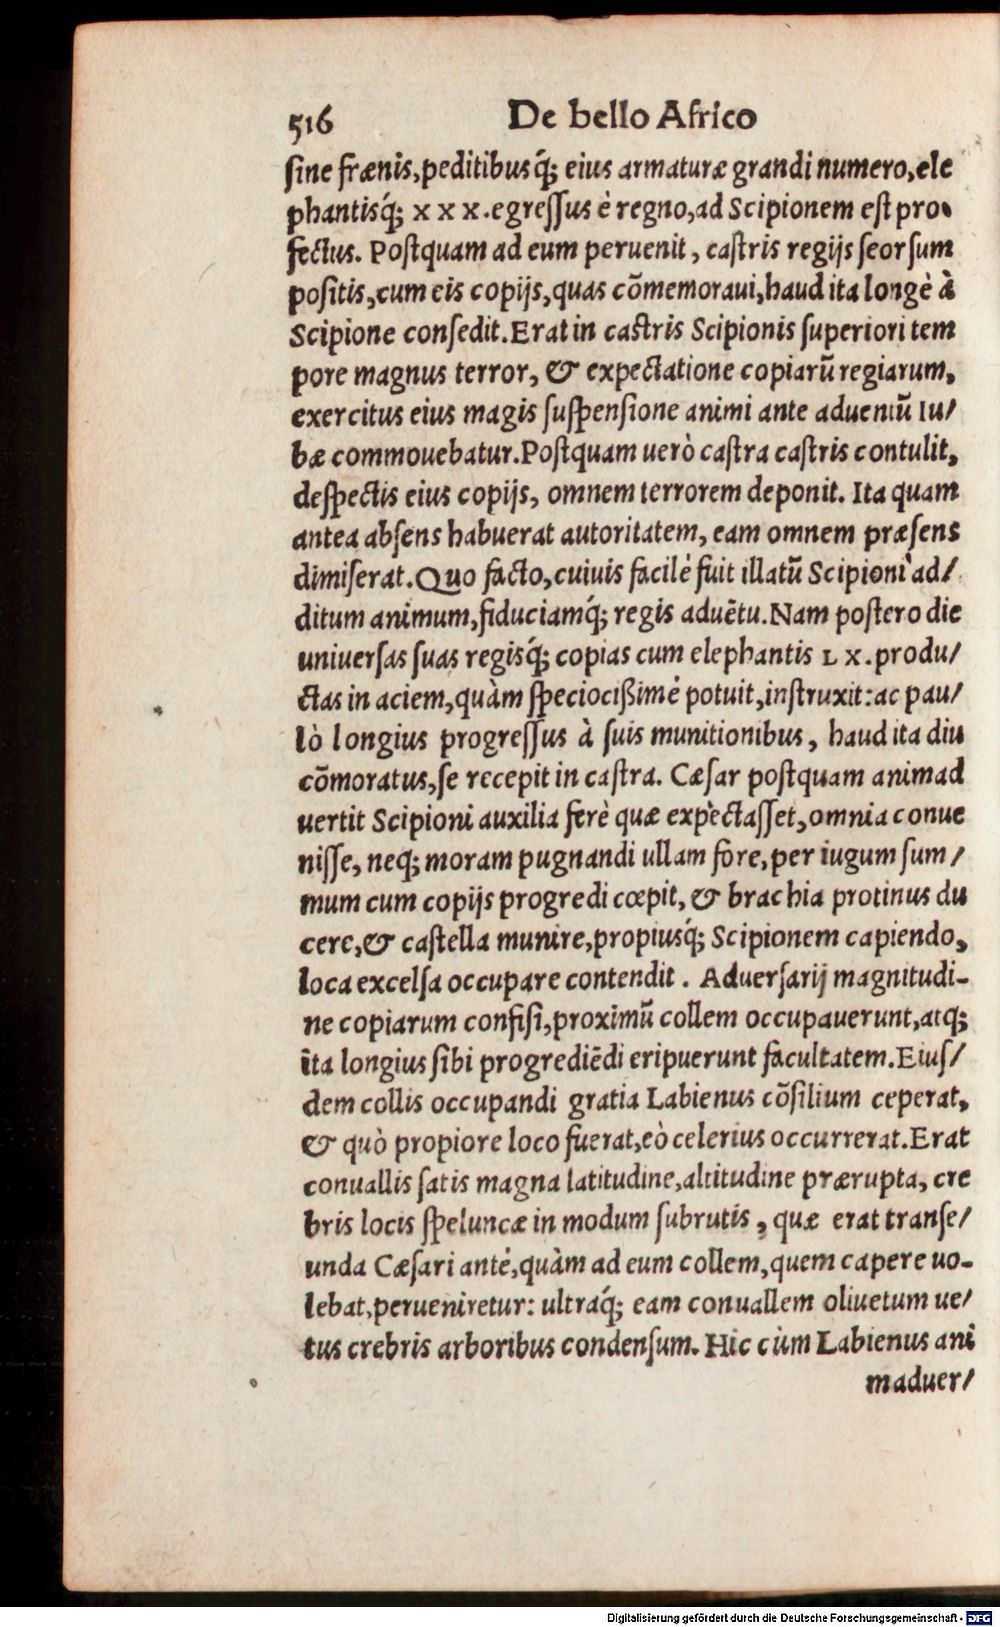 516 De bello Africo
ſine frænis,peditibusq́; eius armaturæ grandi numero,ele
phantisq́; x x x.egreſſus è regno,ad Scipionem eſt pro-
fectus. Poſtquam ad eum peruenit, caſtris regijs ſeorſum
poſitis,cum eis copijs,quas cōmemoraui,haud ita longè à
Scipione conſedit.Erat in caſtris Scipionis ſuperiori tem
pore magnus terror, & expectatione copiarū regiarum,
exercitus eius magis ſuſpenſione animi ante aduentū Iu/
bæ commouebatur.Poſtquam uerò caſtra caſtris contulit,
deſpectis eius copijs, omnem terrorem deponit. Ita quam
antea abſens habuerat autoritatem, eam omnem præſens
dimiſerat.Quo facto,cuiuis facilè fuit illatū Scipioni ad/
ditum animum,fiduciamq́; regis aduētu.Nam poſtero die
uniuerſas ſuas regisq́; copias cum elephantis L x.produ/
ctas in aciem,quàm ſpeciocißimè potuit,inſtruxit:ac pau/
lò longius progreſſus à ſuis munitionibus, haud ita diu
cōmoratus,ſe recepit in caſtra. Cæſar poſtquam animad
uertit Scipioni auxilia ferè quæ expectaſſet,omnia conue
niſſe, neq; moram pugnandi ullam fore,per iugum ſum/
mum cum copijs progredi cœpit, & brachia protinus du
cere,& caſtella munire,propiusq́; Scipionem capiendo,
loca excelſa occupare contendit. Aduerſarij magnitudi-
ne copiarum confiſi,proximū collem occupauerunt,atq;
ita longius ſibi progrediēdi eripuerunt facultatem.Eiuſ/
dem collis occupandi gratia Labienus cōſilium ceperat,
& quò propiore loco fuerat,eò celerius occurrerat.Erat
conuallis ſatis magna latitudine,altitudine prærupta, cre
bris locis ſpeluncæ in modum ſubrutis, quæ erat tranſe/
unda Cæſari antè,quàm ad eum collem,quem capere uo-
lebat,perueniretur: ultraq́; eam conuallem oliuetum ue/
tus crebris arboribus condenſum. Hic cùm Labienus ani
maduer/
Digitalisierung gefördert durch die Deutsche Forschungsgemeinschaft - DFG